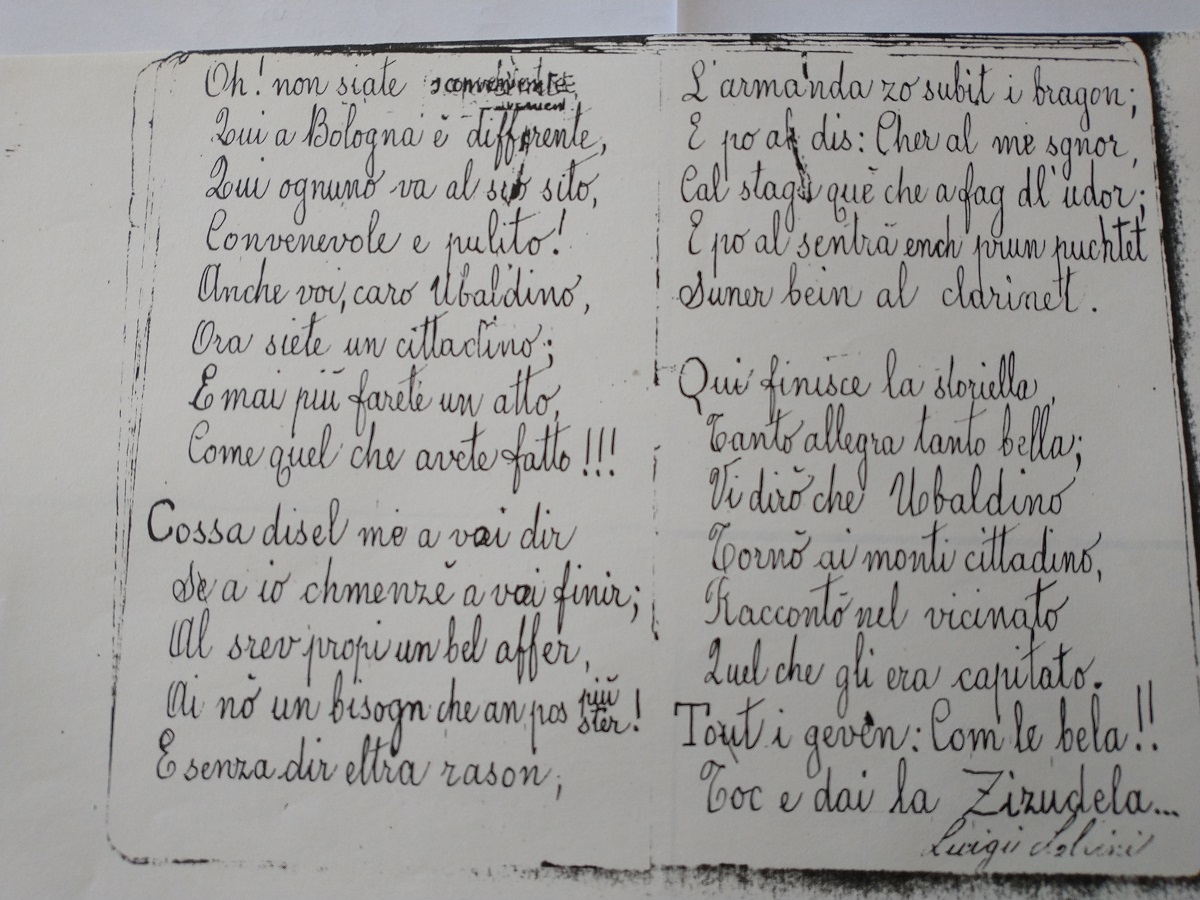 Oh! non siate sconveniente,
Qui a Bologna è differente,
Qui ognuno va al suo sito,
Convenevole e pulito!
Anche voi, caro Ubaldino,
Ora siete un cittadino;
E mai più farete un atto,
Come quel che avete fatto!!!
Cossa disel me a voi dir
Se a io chmenzè a voi finir;
Al srev propi un bel affer,
Ai nò un bisogn che an pos più ster!
E senza dir eltra rason,
L'armanda zo subit i bragon;
E po al dis: Cher al me sgnor,
Cal staga què che a fag dl'udor;
E po al sentrà ench prun puchtet
Suner bein al clarinet.
Qui finisce la storiella,
Tanto allegra tanto bella;
Vi dirò che Ubaldino
Tornò ai monti cittadino,
Raccontò nel vicinato
Quel che gli era capitato.
Tout i geven: Com le bela!!
Toc e dai la Zizudela...
Luigi